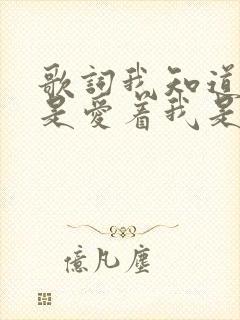 歌詞我知道
是愛着我是
億凡塵